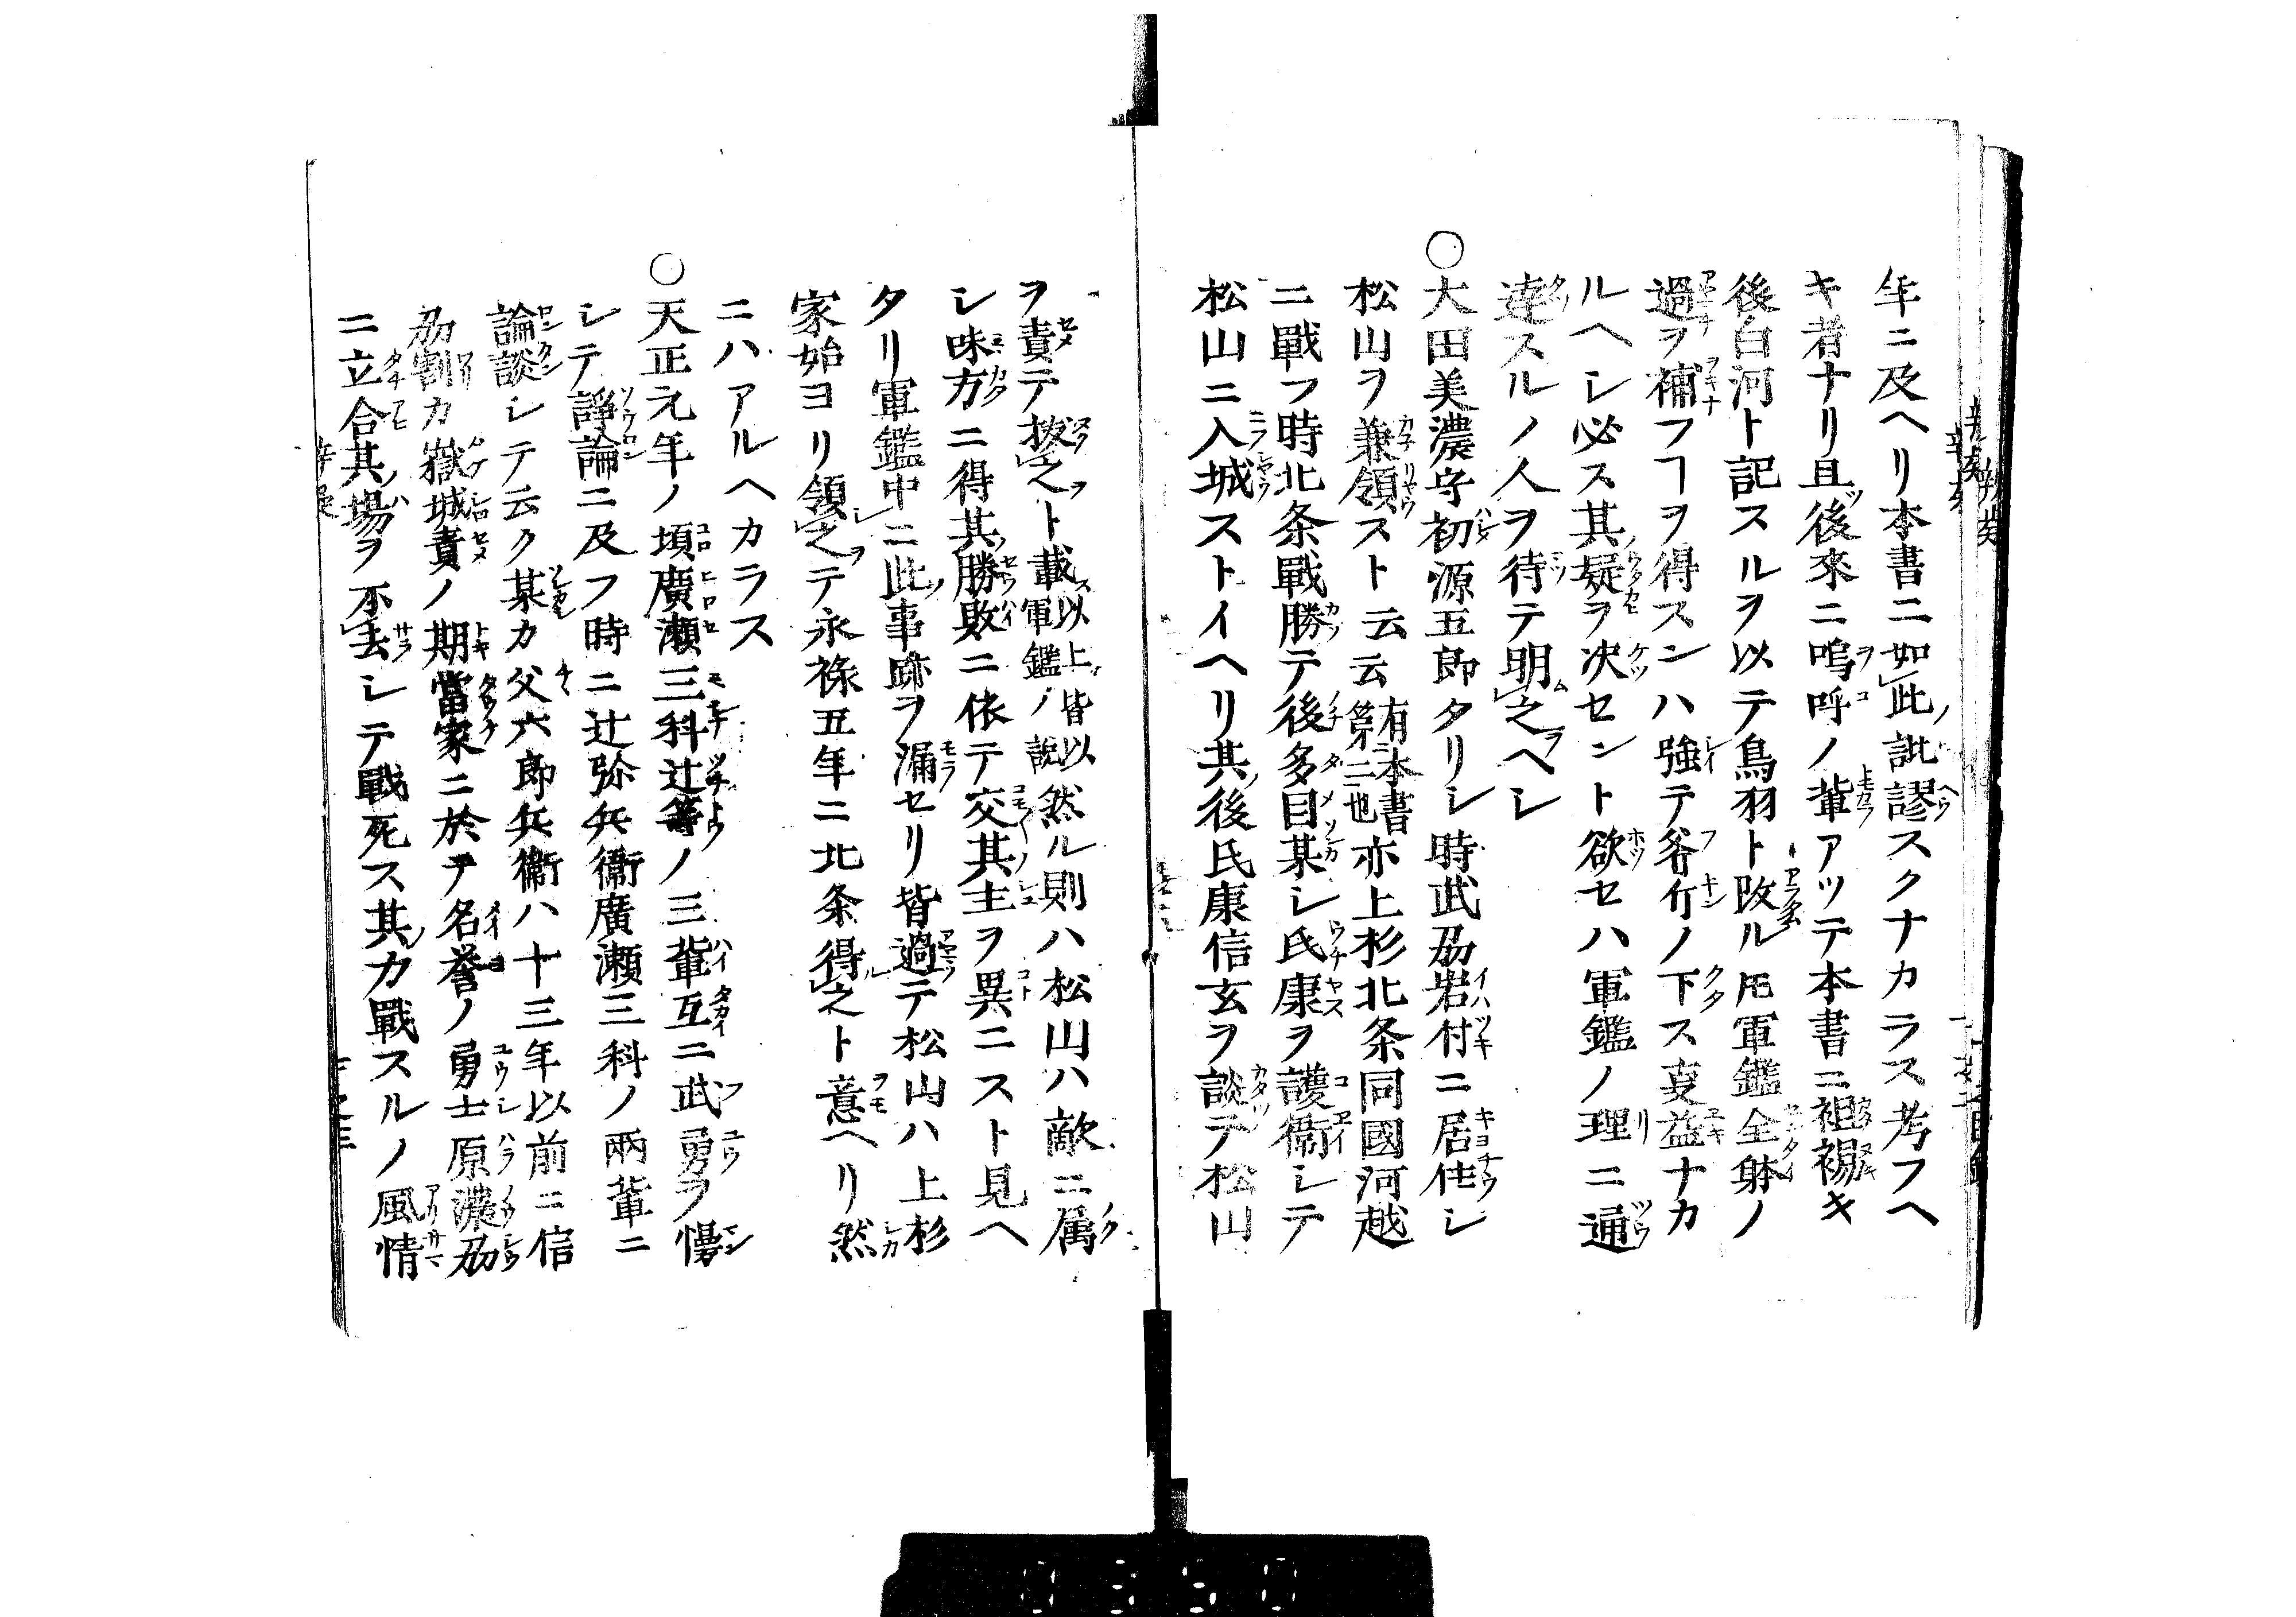 年ニ及ヘリ本書ニ如此訛謬スクナカラス考フヘ
キ者ナリ且後來ニ嗚呼ノ輩アツテ本書ニ袒裼キ
後白河ト記スルヲ以テ鳥羽ト改ル𪜈軍鑑全躰ノ
過ヲ補フヿヲ得スンハ強テ斧斤ノ下ス叓益ナカ
ルヘシ必ス其疑ヲ决セント欲セハ軍鑑ノ理ニ通
達スルノ人ヲ待テ明之ヘシ
○大田美濃守初源五郎タリシ時武刕岩村ニ居住シ
松山ヲ兼領スト云云有本書第二也亦上杉北条同國河越
ニ戰フ時北条戰勝テ後多目某シ氏康ヲ護衞シテ
松山ニ入城ストイヘリ其後氏康信玄ヲ談テ松山
ヲ責テ拔之ト載ス以上皆以軍鑑ノ説然ル則ハ松山ハ敵ニ属
シ味方ニ得其勝敗ニ依テ交其主ヲ異ニスト見ヘ
タリ軍鑑中ニ此事跡ヲ漏セリ皆過テ松山ハ上杉
家始ヨリ領之テ永祿五年ニ北条得之ト意ヘリ然
ニハアルヘカラス
○天正元年ノ頃廣瀬三科辻等ノ三輩互ニ武勇ヲ慢
シテ諍論ニ及フ時ニ辻弥兵衞廣瀬三科ノ兩輩ニ
論談シテ云ク某カ父六郎兵衞ハ十三年以前ニ信
刕割カ嶽城責ノ期當家ニ於テ名誉ノ勇士原濃刕
ニ立合其場ヲ不去シテ戰死ス其力戰スルノ風情